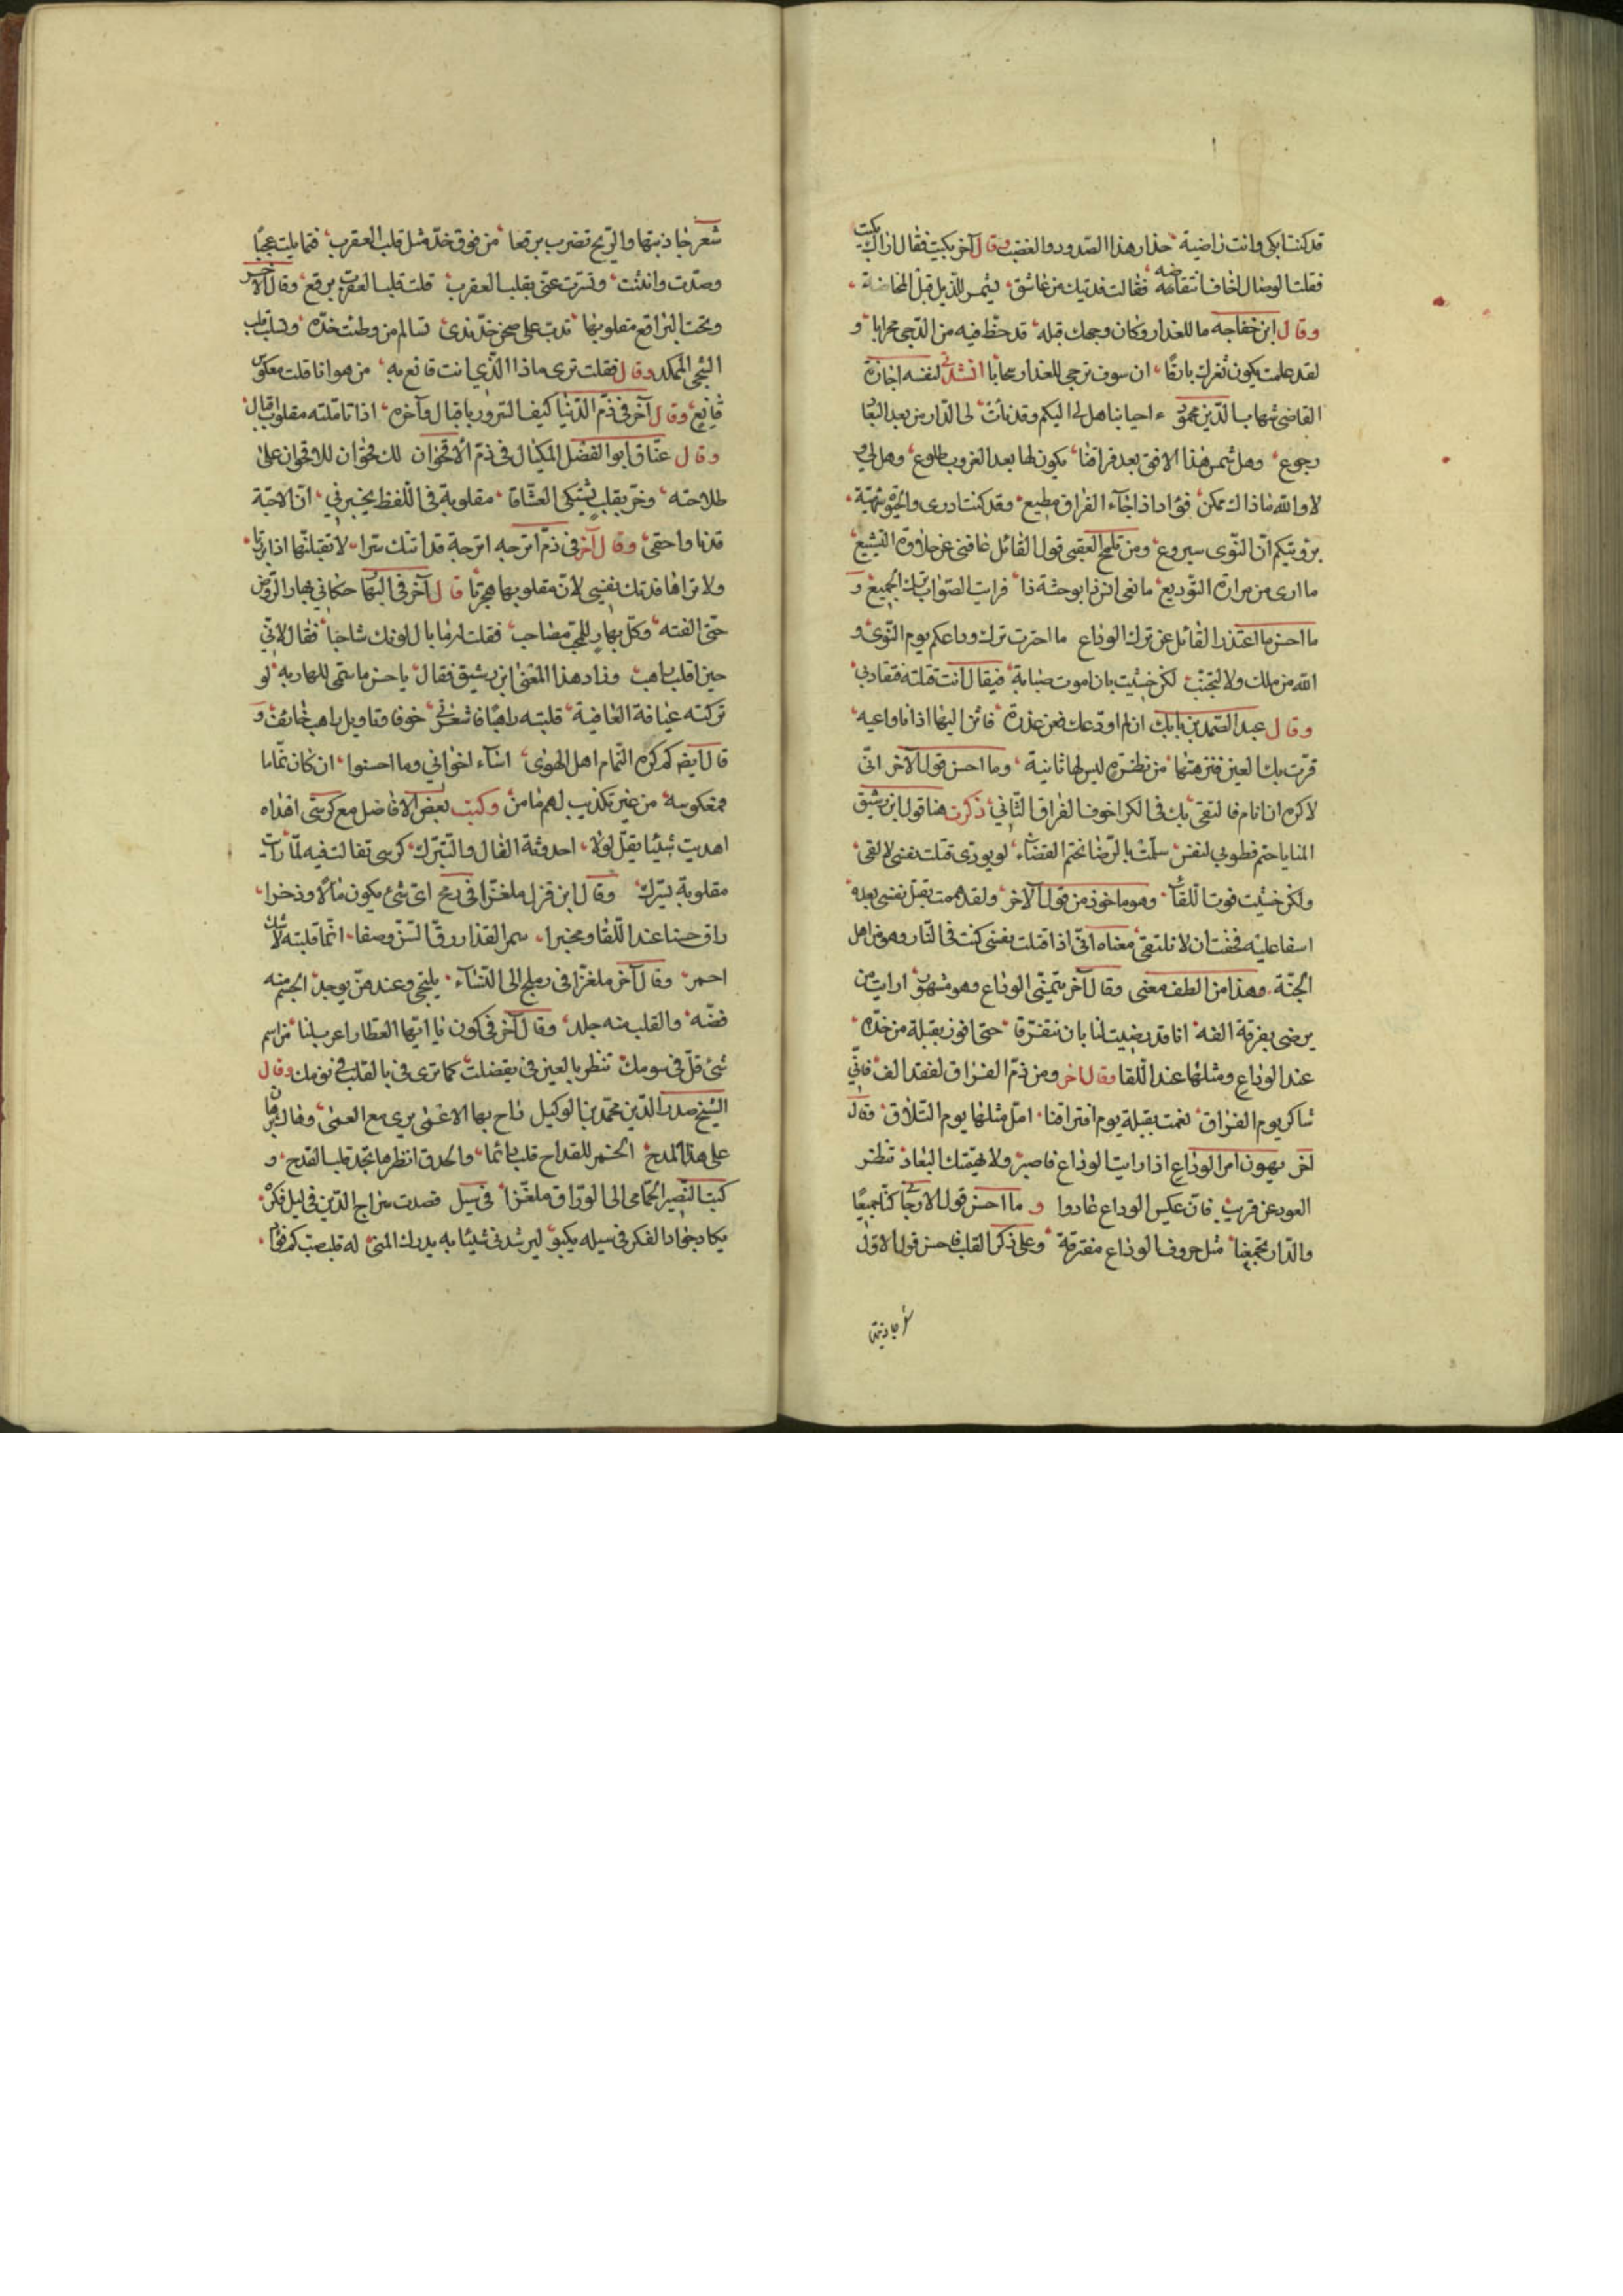 قد كنت ابكى وانت راضية حذار هذا الصدود والغضب وقال آخر بكيت فقال اراك بكيت
فقلت الوصال اخاف انتقاضه فقالت فديتك من عاشق يشمر للذيل قبل المخاضة
وقال ابن خفاجه ما للعذار وكان وجهك قبله قد خط فيه من الدجى محرابا و
لقد علمت بكون ثغرك بارقا ان سوف تزجى للعذار سحابا انشدنى لنفسه اجازة
القاضى شهاب الدين محمود ءاحبابنا هل لى اليكم وقد نأت لى الدار من بعد البعاد
رجوع وهل شمس هذا الافق بعد فراقنا يكون لها بعد الغروب طلوع وهل لى
لا والله ما ذاك ممكن فؤاد اذا جآء الفراق مطيع وقد كنت ادرى والحيوة شهية
برؤيتكم ان النوى سيروع ومن تلميح العقبى قول القائل عاقنى عن حلاوة التشييع
ما ارى من مرارة التوديع ما نفى انس ذا بوحشة ذا فرايت الصواب ترك الجميع و
ما احسن ما اعتذر القائل عن ترك الوداع ما اخترت ترك وداعكم يوم النوى و
الله من ملل ولا لتجنب لكن خشيت بان اموت صبابة فيقال انت قتلته فتقاد بى
وقال عبد الصمد بن بابك ان لم اودعك فعن عذرة فائن اليها اذنا واعيه
قرت بك العين فنزهتها من نظرة ليس لها ثانية وما احسن قول الآخر انى
لاكره ان انام فالتقى بك فى الكرا خوف الفراق الثانى ذكرت هنا قول ابن رشيق
المنايا حتم فطوبى لنفس سلمت بالرضا نختم القضآء لو يودى قتلت نفسى لالقى
ولكن خشيت فوت اللقآ وهو ماخوذ من قول الآخر ولقد هممت بقتل نفسى بعده
اسفا عليه فخفت ان لا نلتقى معناه انى اذا قتلت نفسى كنت فى النار وهو من اهل
الجنة وهذا من الطف معنى وقال آخر يتمنى الوداع وهو مشهور ارايت من
يرضى بفرقة الفه انا قد رضيت لنا بان نتفرقا حتى افوز بقبلة من خده
عند الوداع ومثلها عند اللقا وقال اخر ومن ذم الفراق لفقد الف فانى
شاكر يوم الفراق نعمت بقبلة يوم افتراقنا امل مثلها يوم التلاق وقال
اخر يهون امر الوداع اذا رايت الوداع فاصبر ولا يهمنك البعاد تنظر
العود عن قريب فان عكس الوداع عادوا و ما احسن قول الارجانى كنا جميعا
والدار تجمعنا مثل حروف الوداع مفترقة وعلى ذكر القلب فاحسن قول الاول
شعر جاذبتها
شعر جاذبتها والريح تضرب برقعا من فوق خد مثل قلب العقرب فتمايلت عجبا
وصدت وانثنت وتسترت عنى بقلب العقرب قلت قلب العقرب برقع وقال الآخر
وتحت البراقع مقلوبها تدب على صحن خد ندى تسالم من وطئت خده وتسلب قلب
الشجى المكمد وقال فقلت ترى ماذا الذى انت قانع به من هوانا قلت معكوس
قانع وقال آخر فى ذم الدنيا كيف السرور باقبال وآخره اذا تاملته مقلوب اقبال
وقال عناق ابو الفضل الميكال فى ذم الاقحوان لك محوان للاقحوان على
طلاحته وخز بقلب يشتكى العشاقا مقلوبة فى اللفظ يخبرنى ان الاحبة
قد نا واحقى وقال آخر فى ذم اترجه اترجة قد اتتك سرا لا تقبلنها اذا برتا
ولا تراها فدتك نفسى لان مقلوبها هجرتا قال آخر فى البهار حكانى بهار الروض
حتى الفته وكل بهار للمحب مصاحب فقلت له ما بال لونك شاحبا فقال لانى
حين اقلب راهب وزاد هذا المعنى ابن رشيق فقال يا حسن ما سمى للبهار به لو
تركته عيافة العافية قلبته راهبا فاشعرنى خوفا وتاويل راهب خائف و
قال ايضا كم كره النمام اهل الهوى اسآء اخوانى وما احسنوا ان كان نماما
فمعكوسه من غير تكذيب لهم مامن وكتب بعض الافاضل مع كرسى اهداه
اهديت شيئا يقل لولا احدوثة الفال والتبرك كرسى تفالت فيه لما رايت
مقلوبه يسرك وقال ابن قزل ملغزا فى رمح اى شئ يكون مالا وذخرا
راق حسنا عند اللقا ومخبرا سمر القد ازرق السن وصفا انما قلبته لا شك
احمر وقال آخر ملغزا فى دملج الى النسآء يلتجى وعندهن يوجد الجسم منه
فضه والقلب منه جلد وقال آخر فى كمون يا ايها العطار اعرب لنا من اسم
شئ قل فى سومك تنظر بالعين فى يقضلت كما ترى فى بالقلب فى نومك وقال
الشيخ صدر الدين محمد بن الوكيل راح بها الاعمى يرى مع العمى
على هذا المدح الخمر للقداح قلب دائما والحدق انظرها تجد قلب القدح و
كتب النصير الحمامى الى الوراق ملغزا فى سيل قصدت سراج الدين فى ليل فكرة
يكاد جواد الفكر فى سيله يكبو ليرشدنى شيئا به يدرك المنى له قلب صب كم